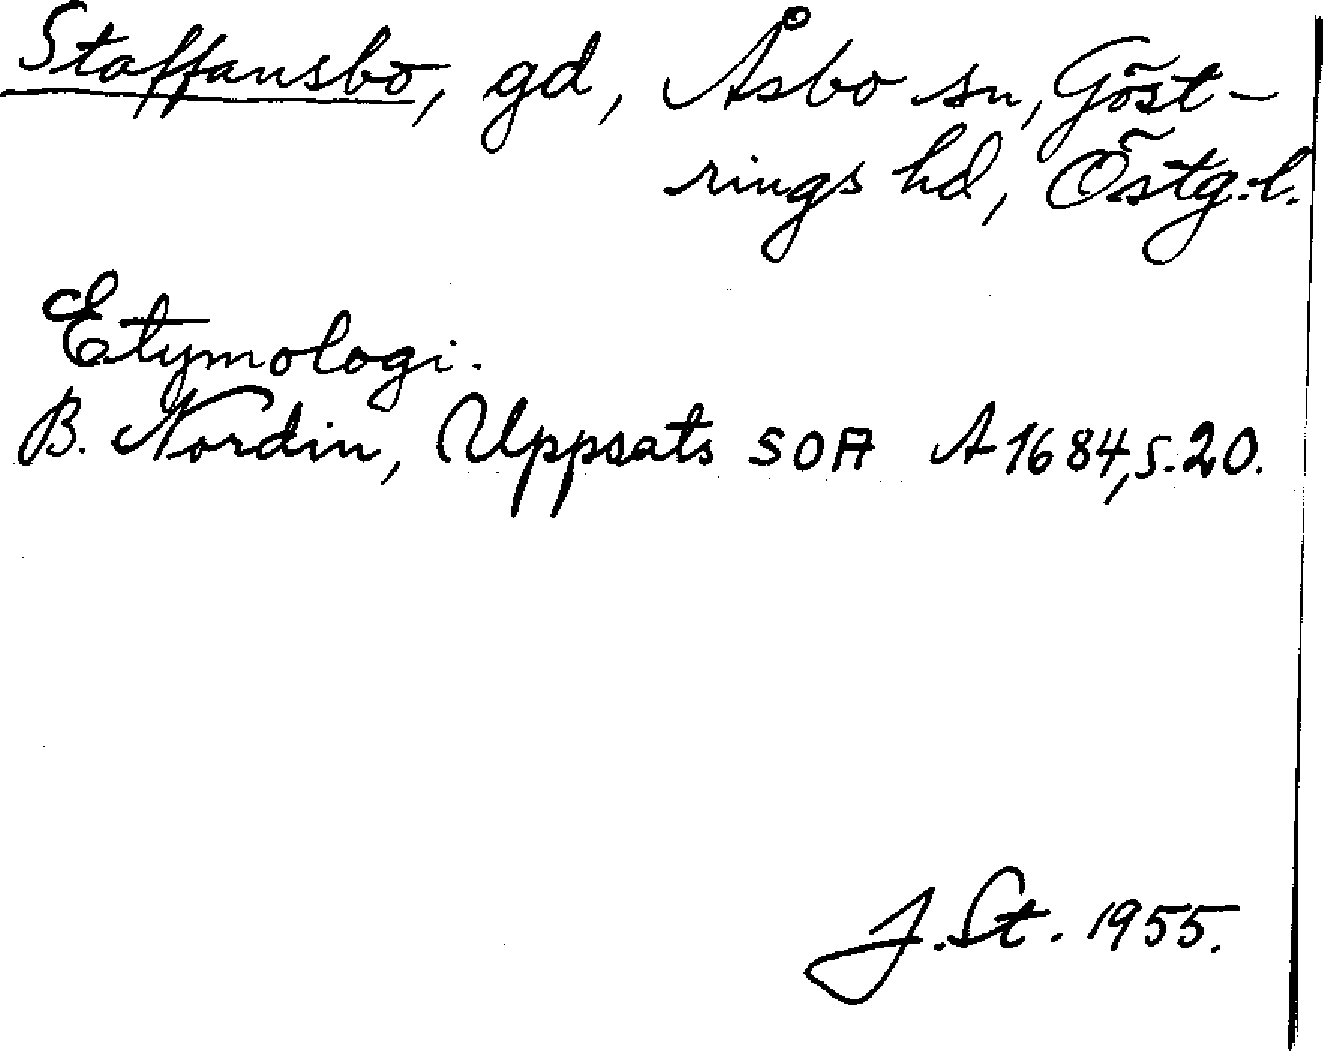 Staffansbo, gd, Åsbo sn, Göst-
rings hd, Östg.l.
Etymologi.
B. Nordin, Uppsats SOA A 1684, s. 20.
J. St. 1955.